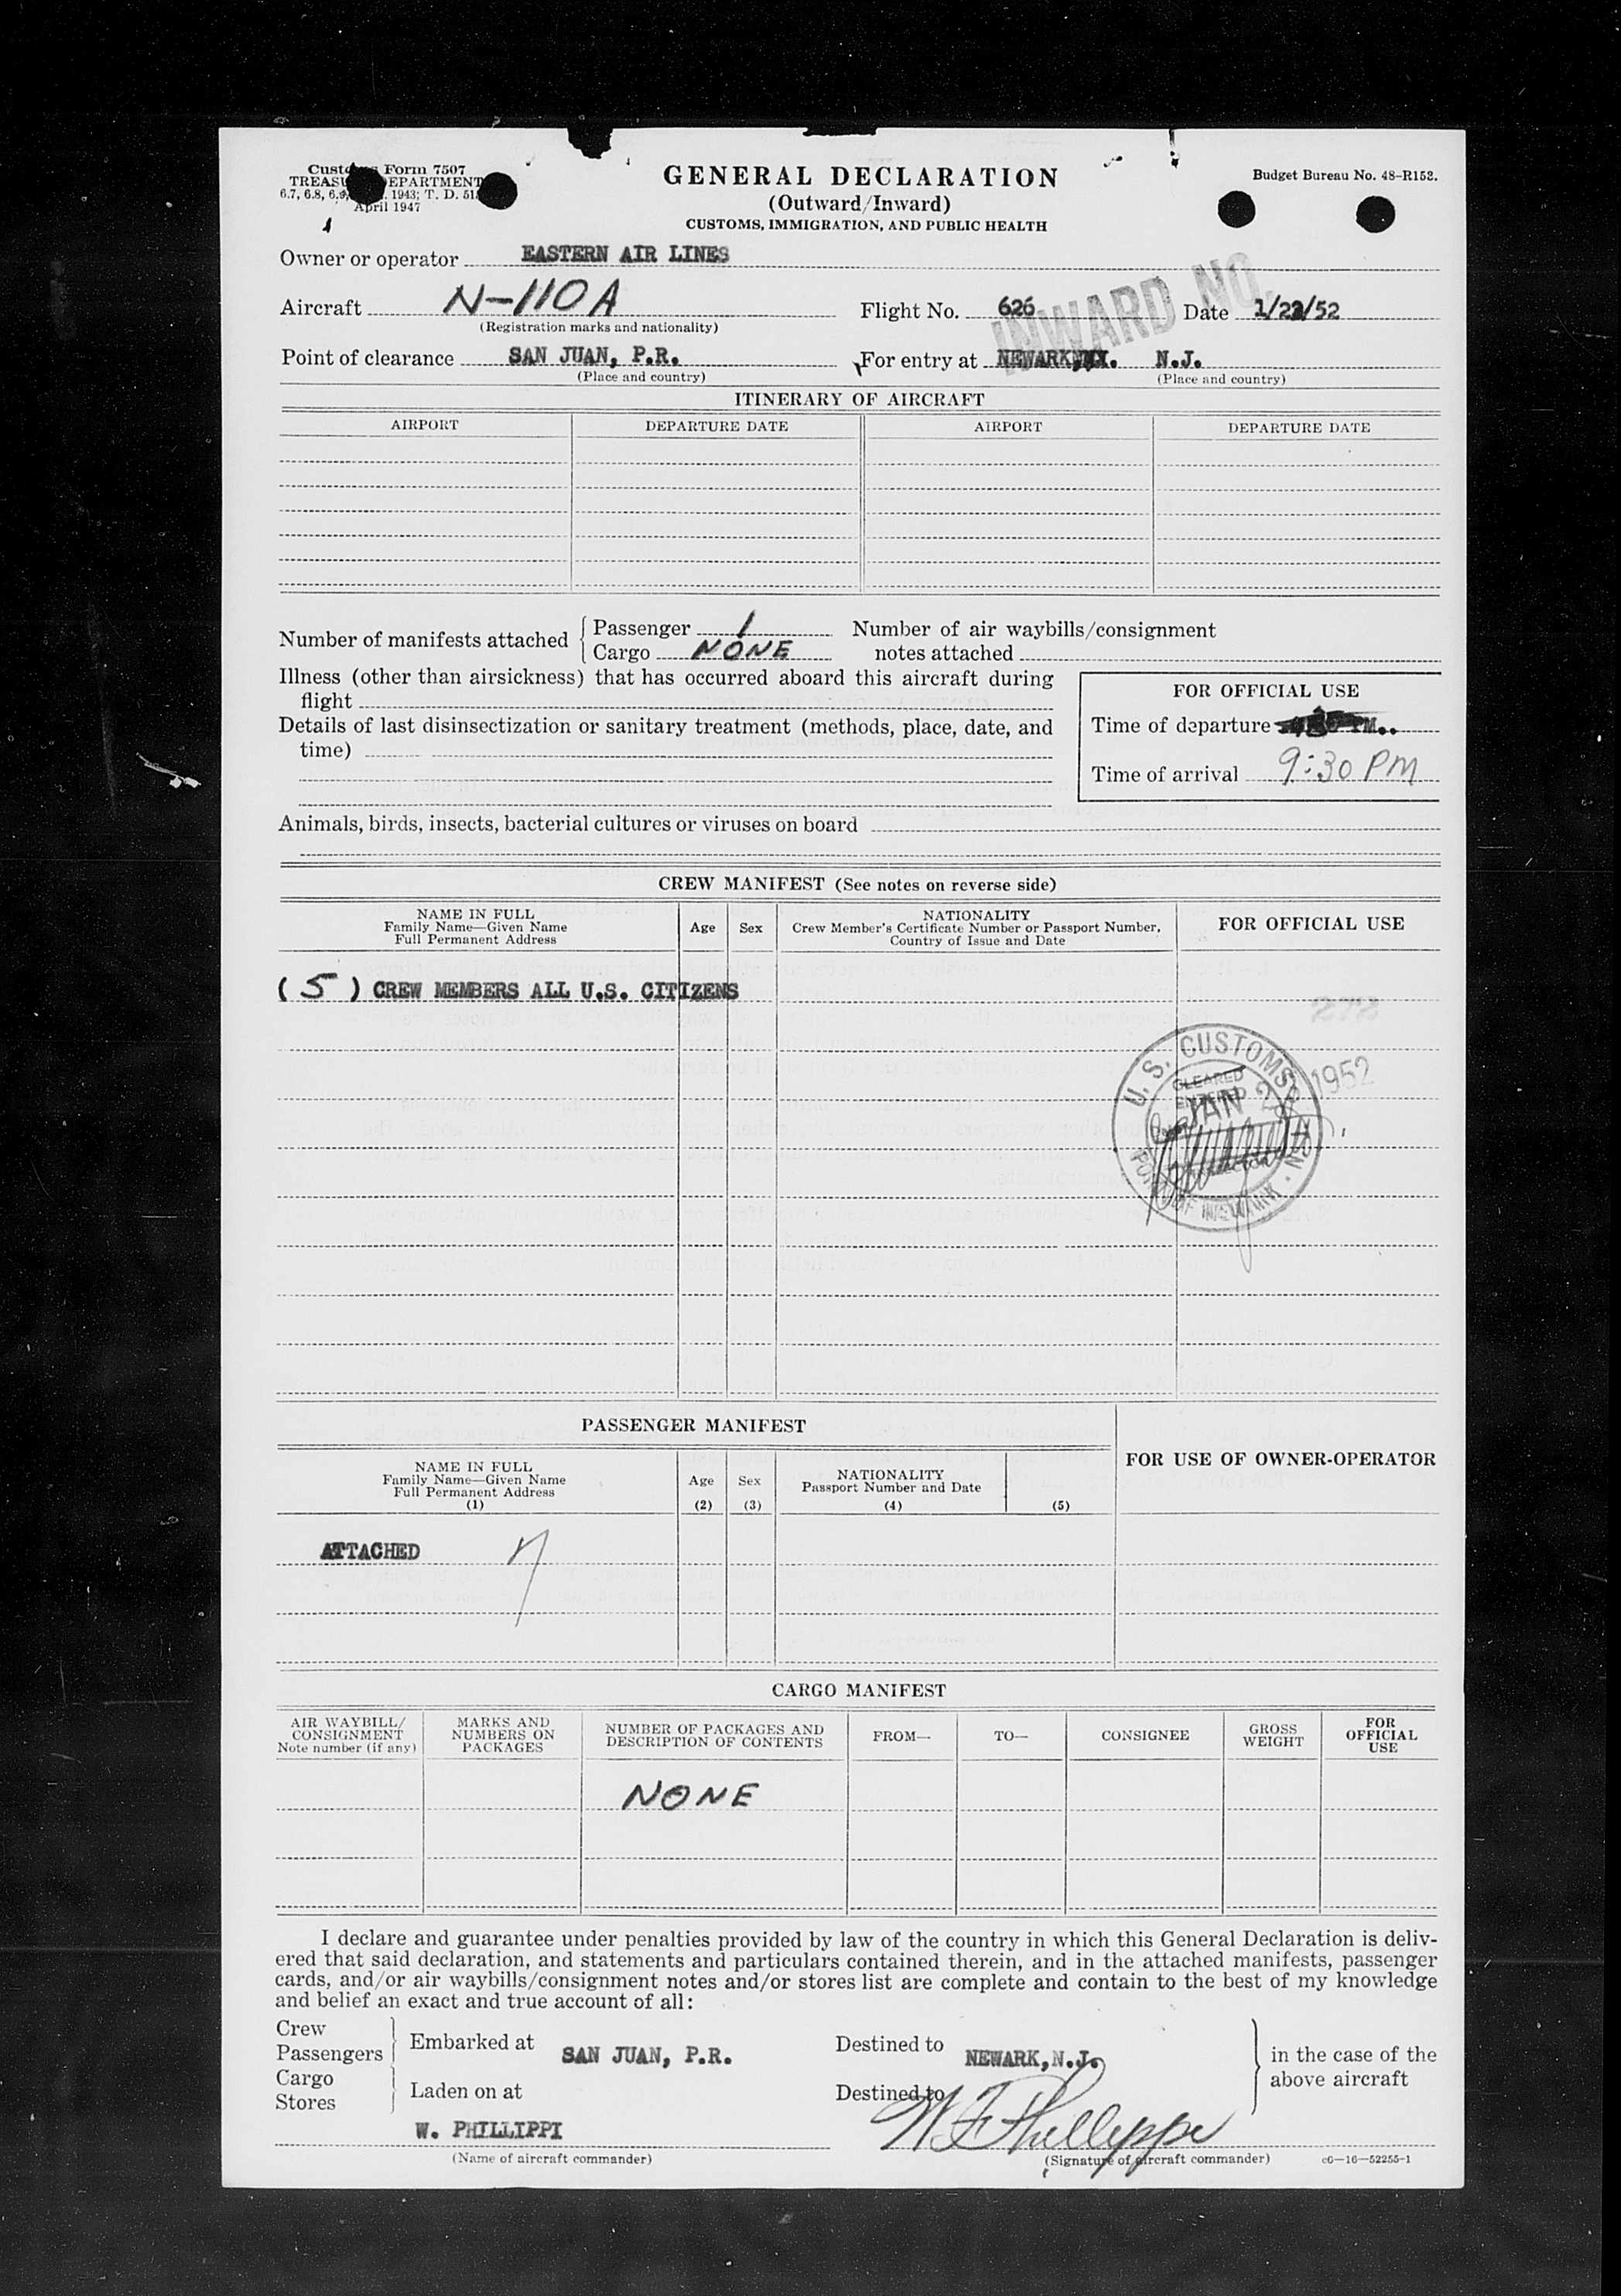 Customs Form 7507
TREASURY DEPARTMENT
6.7, 6.8, 6.9, 1943; T. D. 51
April 1947
GENERAL DECLARATION
(Outward/Inward)
CUSTOMS, IMMIGRATION, AND PUBLIC HEALTH
Budget Bureau No. 48-R152.
1
Owner or operator EASTERN AIR LINES
INWARD NO.
Aircraft N-110A Flight No. 626 Date 1/22/52
(Registration marks and nationality)
Point of clearance SAN JUAN, P.R. For entry at NEWARK, N.J.
(Place and country) (Place and country)
ITINERARY OF AIRCRAFT
AIRPORT DEPARTURE DATE AIRPORT DEPARTURE DATE
Number of manifests attached Passenger 1 Number of air waybills/consignment
Cargo NONE notes attached
Illness (other than airsickness) that has occurred aboard this aircraft during
flight
Details of last disinsectization or sanitary treatment (methods, place, date, and
time)
FOR OFFICIAL USE
Time of departure PM..
Time of arrival 9:30 PM
Animals, birds, insects, bacterial cultures or viruses on board
CREW MANIFEST (See notes on reverse side)
NAME IN FULL
Family Name—Given Name
Full Permanent Address
Age Sex
NATIONALITY
Crew Member's Certificate Number or Passport Number,
Country of Issue and Date
FOR OFFICIAL USE
(5) CREW MEMBERS ALL U.S. CITIZENS
272
U. S. CUSTOMS
CLEARED
ENTERED
JAN 1952
PORT OF NEWARK · N.J.
PASSENGER MANIFEST
FOR USE OF OWNER-OPERATOR
NAME IN FULL
Family Name—Given Name
Full Permanent Address
(1)
Age
(2)
Sex
(3)
NATIONALITY
Passport Number and Date
(4)
(5)
ATTACHED 7
CARGO MANIFEST
AIR WAYBILL/
CONSIGNMENT
Note number (if any)
MARKS AND
NUMBERS ON
PACKAGES
NUMBER OF PACKAGES AND
DESCRIPTION OF CONTENTS
FROM—
TO—
CONSIGNEE
GROSS
WEIGHT
FOR
OFFICIAL
USE
NONE
I declare and guarantee under penalties provided by law of the country in which this General Declaration is deliv-
ered that said declaration, and statements and particulars contained therein, and in the attached manifests, passenger
cards, and/or air waybills/consignment notes and/or stores list are complete and contain to the best of my knowledge
and belief an exact and true account of all:
Crew
Passengers
Cargo
Stores
Embarked at SAN JUAN, P.R. Destined to NEWARK, N.J.
Laden on at Destined to
in the case of the
above aircraft
W. PHILLIPPI W F Phillippi
(Name of aircraft commander) (Signature of aircraft commander) c6—16—52255-1